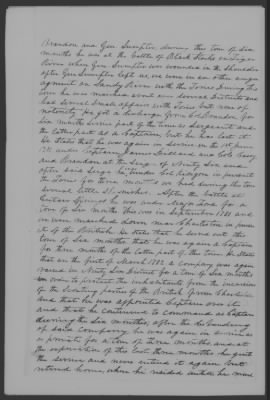 Brandon and Gen Sumpter, during this tour of Six
months he was at the battle of Black Stocks on Tyger
River when Gen Sumpter was wounded in the Shoulder
after Gen Sumpter left us, we were in an other engagement
on Sandy River with the Tories During this
tour he was marched over several Districts and
had several small affairs with Tories but none of
notoriety he got a discharge from Col Brandon for
Six months service part of the time as Sergeant and
the latter part as a Captain, but he has lost it
He States that he was again in service on the 1st June
1781 under Captain
and Brandon at the Siege of Ninety Six and
after said Siege he, under Col
the Tories for three months or
several little
he was under Major Lord for a
tour of Six months this was in September 1781 and
we were marched down near Charleston in pursuit
of the British. He states that he served out this
tour of six months that he was again a Captain
for three months of the latter part of this tour he states
that on the first of March 1782 a company was again
raised in Ninety Six District for a tour of Six months
in order to protect the inhabitants from the incursion
of the scouting parties of the British from Charleston
and that he was appointed Captain over it
and that he continued to command as Captain
during the Six months, after the disbanding
of said company he was again in service
as private for a tour of three months and at
the expiration of this last three months he quit
the service and never entered it again but
retired home, where he resided until he moved